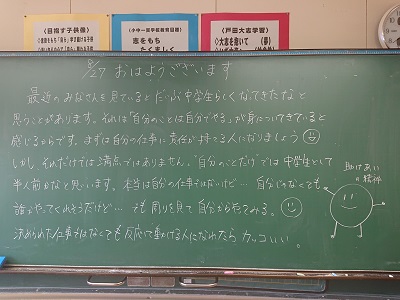 《目指す子供像》
《小中一貫学校教育目標》
志をもち
たくましく
《戸田大志学習》
《大志を抱いて》
(夢)
5/27 おはようございます
最近のみなさんを見ているとだいぶ中学生らしくなってきたなと
思うことがあります。それは"自分のことは自分でやる"が身についてきていると
感じるからです。まずは自分の仕事に責任が持てる人になりましょう
しかし、それだけでは満点ではありません。"自分のことだけ"では中学生として
半人前かなと思います。本当は自分の仕事ではないけど… 自分じゃなくても
誰かやってくれそうだけど… でも周りを見て自分からやってみる。
決められた仕事ではなくても反応して動ける人になれたらカッコいい。
助けあい
の精神